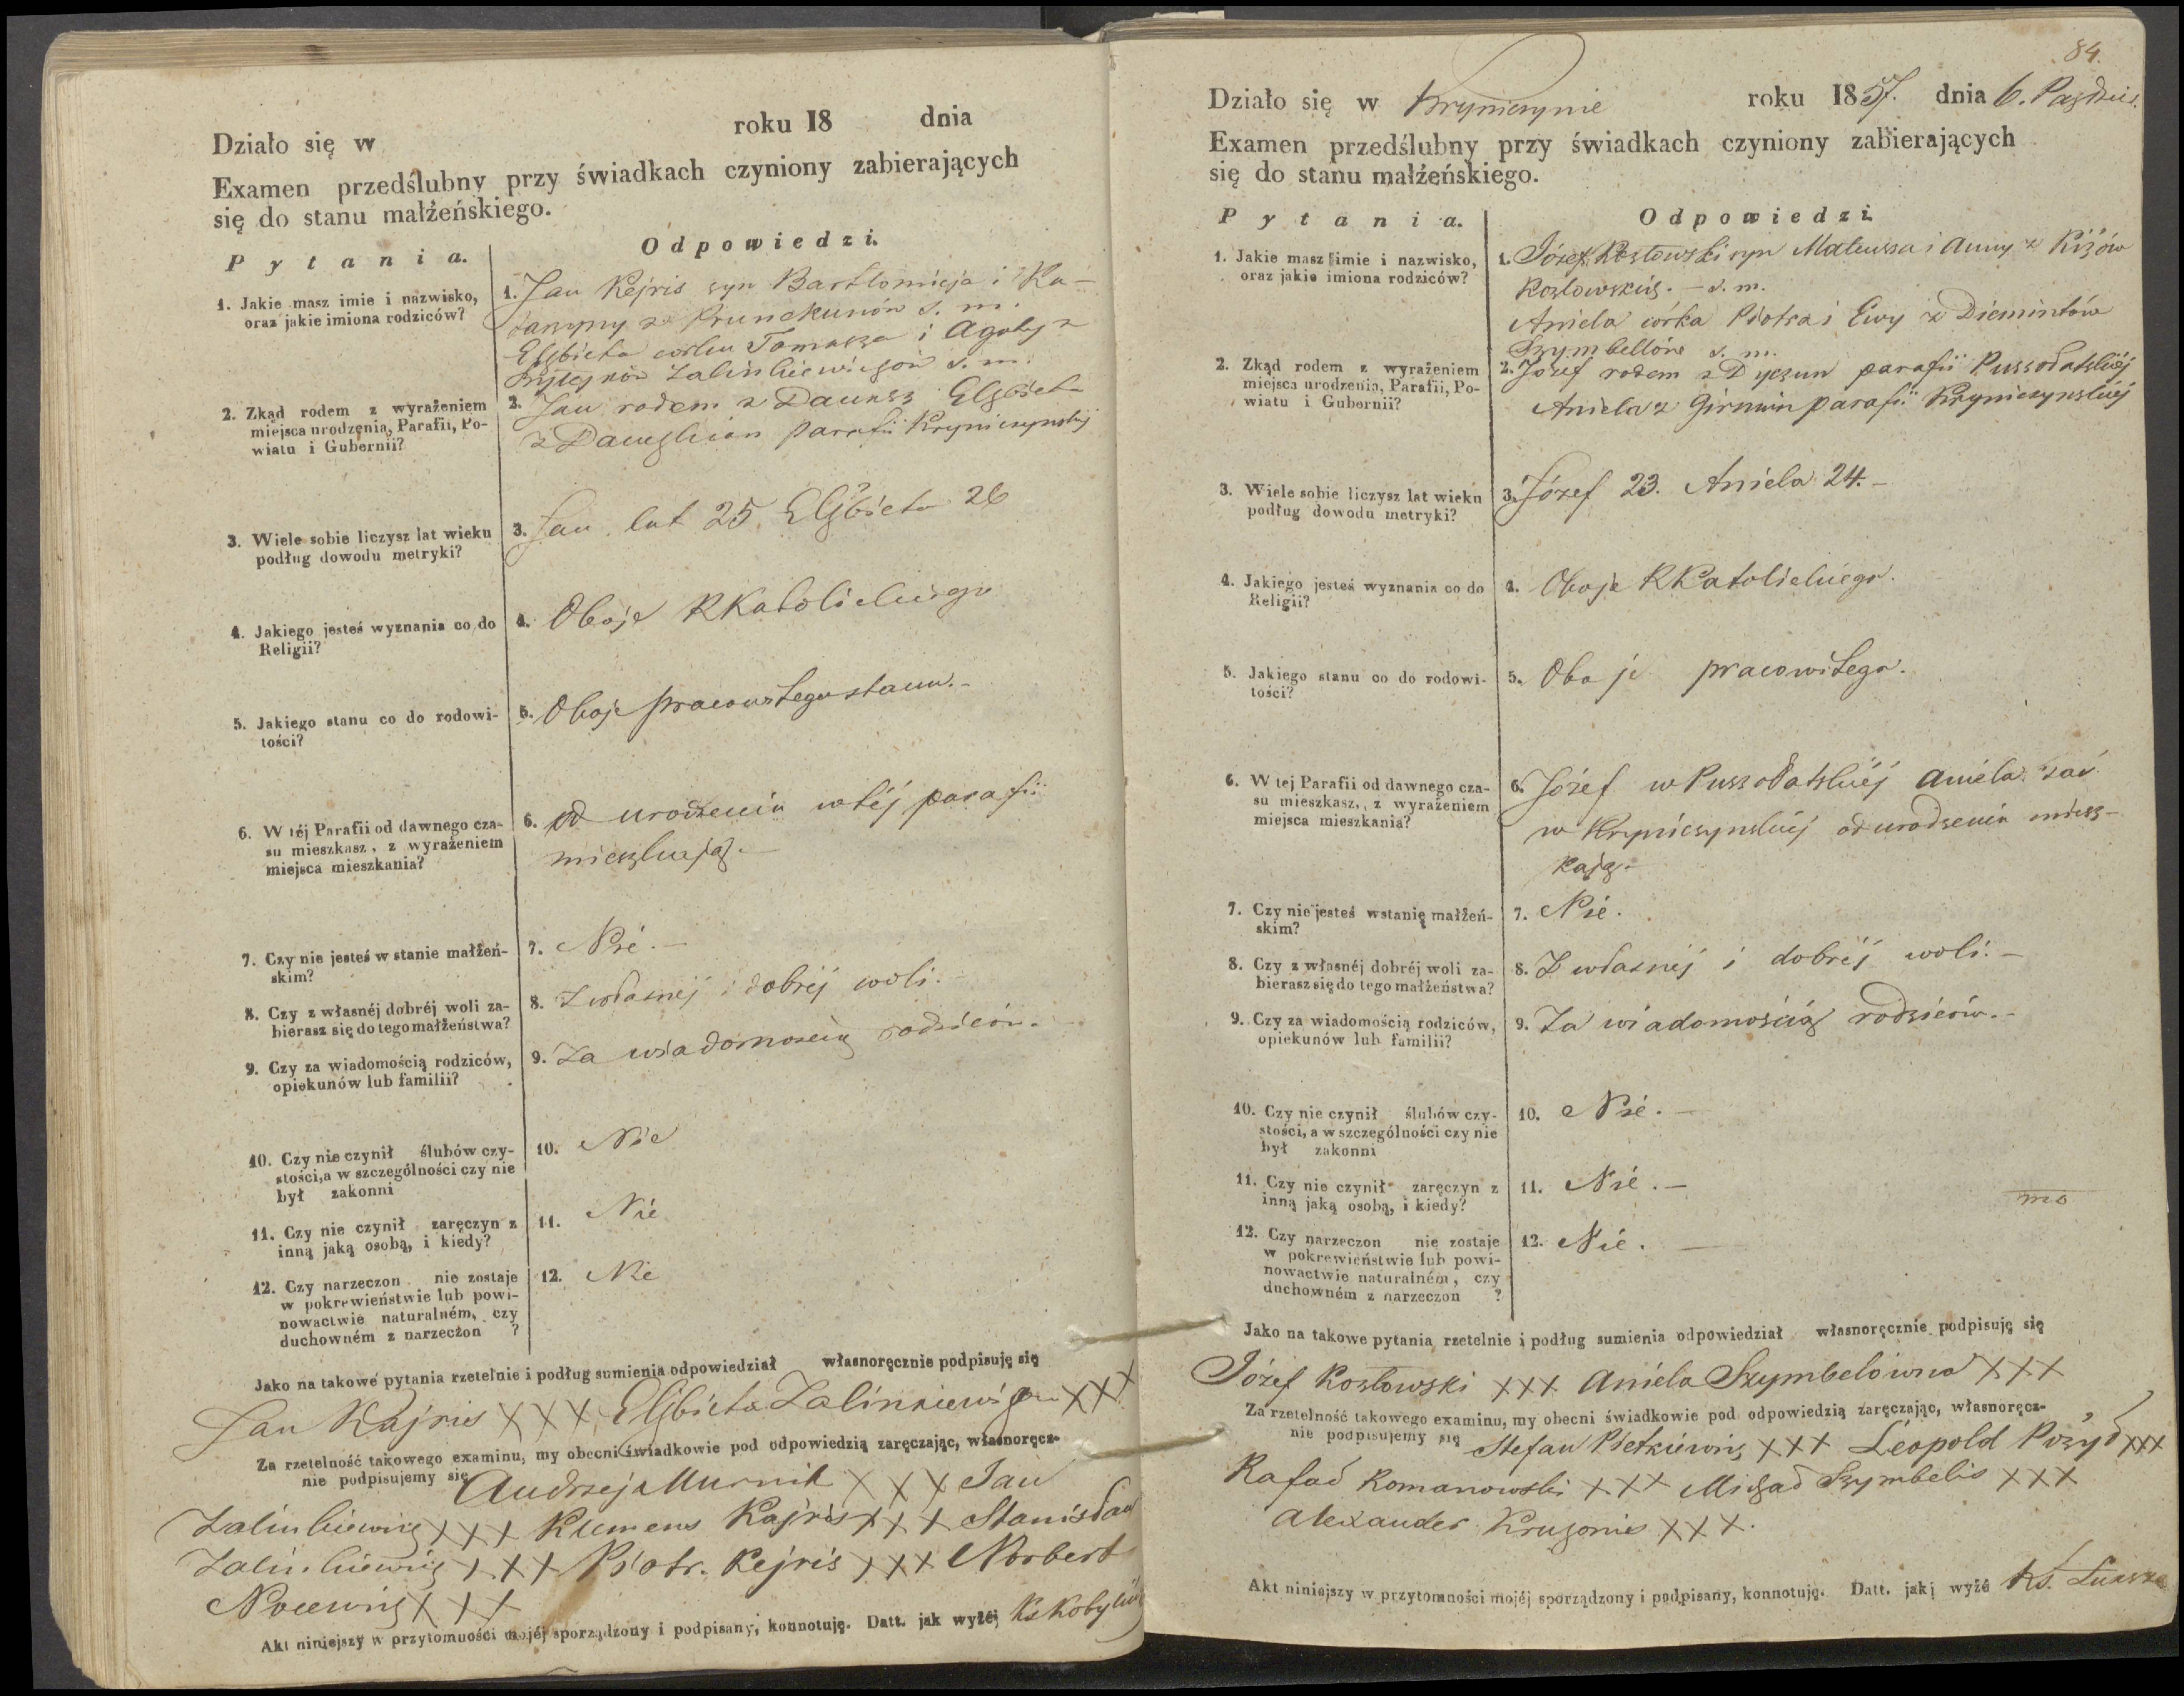 Działo się w roku 18 dnia
Examen przedślubny przy świadkach czyniony zabierających
się do stanu małżeńskiego.
Pytania. Odpowiedzi.
1. Jakie masz imie i nazwisko,
oraz jakie imiona rodziców?
1. Jan Kejris syn Bartłomieja i Ka-
tarzyny z Prunckunów s. m.
Elżbieta córka Tomasza i Agaty z
Zalinkiewiczów s. m.
2. Zkąd rodem z wyrażeniem
miejsca urodzenia, Parafii, Po-
wiatu i Gubernii?
2. Jan rodem z Dauksz Elżbieta
z parafii Kryniczynskiej
3. Wiele sobie liczysz lat wieku
podług dowodu metryki?
3. Jan lat 25 Elżbieta 26
4. Jakiego jesteś wyznania co do
Religii?
4. Oboje RKatolickiego
5. Jakiego stanu co do rodowi-
tości?
5. Oboje pracowitego stanu.-
6. W téj Parafii od dawnego cza-
su mieszkasz, z wyrażeniem
miejsca mieszkania?
6. od urodzenia w téj parafii
mieszkają.-
7. Czy nie jesteś w stanie małżeń-
skim?
7. Nié.-
8. Czy z własnéj dobréj woli za-
bierasz się do tego małżeństwa?
8. Z własnej i dobréj woli.
9. Czy za wiadomością rodziców,
opiekunów lub familii?
9. Za wiadomością rodziców.
10. Czy nie czynił ślubów czy-
stości, a w szczególności czy nie
był zakonni
10. Nie
11. Czy nie czynił zaręczyn z
inną jaką osobą, i kiedy?
11. Nie
12. Czy narzeczon nie zostaje
w pokrewieństwie lub powi-
nowactwie naturalném, czy
duchowném z narzeczon ?
12. Nie
Jako na takowe pytania rzetelnie i podług sumienia odpowiedział własnoręcznie podpisuję się
Jan Kajris XXX Elżbieta XXX
Za rzetelność takowego examinu, my obecni świadkowie pod odpowiedzią zaręczając, własnoręcz-
nie podpisujemy się Andrzej Murnik XXX Jan
Zalinkiewicz XXX Klemens Kajris XXX Stanisław
Zalinkiewicz XXX Piotr Kejris XXX Norbert
Nocewicz XXX
Akt niniejszy w przytomności mojéj sporządzony i podpisany, konnotuję. Datt. jak wyżéj
84.
Działo się w Kryniczynie roku 1857. dnia 6. Pazdzier.
Examen przedślubny przy świadkach czyniony zabierających
się do stanu małżeńskiego.
Pytania. Odpowiedzi.
1. Jakie masz imie i nazwisko,
oraz jakie imiona rodziców?
1. Józef Kozłowski syn Mateusza i Anny z Kiżów
Kozłowskich. - s. m.
Aniela córka Piotra i Ewy z Diemintów
Szymbellów s. m.
2. Zkąd rodem z wyrażeniem
miejsca urodzenia, Parafii, Po-
wiatu i Gubernii?
2. Józef rodem z parafii Pussołatskiéj
Aniela z Girnun parafii Kryniczynskiéj
3. Wiele sobie liczysz lat wieku
podług dowodu metryki?
3. Józef 23. Aniela 24.-
4. Jakiego jesteś wyznania co do
Religii?
4. Oboje RKatolickiego.
5. Jakiego stanu co do rodowi-
tości?
5. Oboje pracowitego.
6. W tej Parafii od dawnego cza-
su mieszkasz, z wyrażeniem
miejsca mieszkania?
6. Józef w Pussołatskiéj Aniela zaś
w Kryniczynskiéj od urodzenia miesz-
kają.-
7. Czy nie jesteś wstanię małżeń-
skim?
7. Nié.
8. Czy z własnéj dobréj woli za-
bierasz się do tego małżeństwa?
8. Z własnéj i dobréj woli.-
9. Czy za wiadomością rodziców,
opiekunów lub familii?
9. Za wiadomością rodziców.-
10. Czy nie czynił ślubów czy-
stości, a w szczególności czy nie
był zakonni
10. Nié.-
11. Czy nie czynił zaręczyn z
inną jaką osobą, i kiedy?
11. Nié.-
12. Czy narzeczon nie zostaje
w pokrewieństwie lub powi-
nowactwie naturalném, czy
duchowném z narzeczon ?
12. Nié.-
Jako na takowe pytania rzetelnie i podług sumienia odpowiedział własnoręcznie podpisuję się
Józef Kozłowski XXX Aniela Szymbelówna XXX
Za rzetelność takowego examinu, my obecni świadkowie pod odpowiedzią zaręczając, własnoręcz-
nie podpisujemy się Stefan Pietkiewicz XXX Leopold XXX
Rafał Romanowski XXX Michał Szymbelis XXX
Alexander XXX.
Akt niniejszy w przytomności mojéj sporządzony i podpisany, konnotuję. Datt. jak wyżé